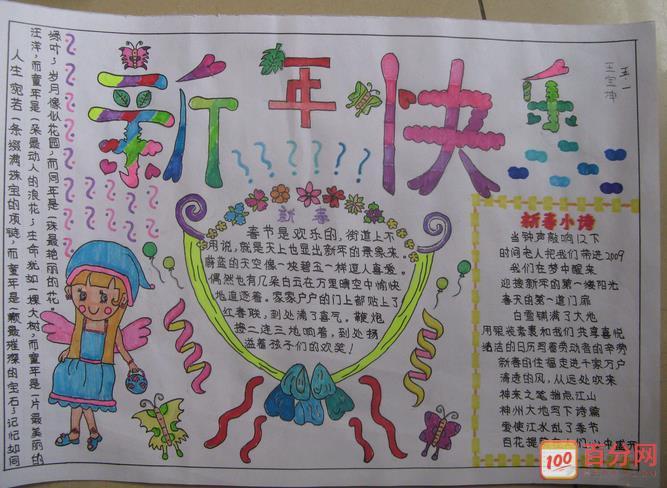 新年快乐
五、一
新春
春节是欢乐的,街道上不
用说,就是天上也显出新年的景象来。
蔚蓝的天空像一块碧玉一样逗人喜爱。
偶然也有几朵白云在万里晴空中愉快
地追逐着。家家户户的门上都贴上了
红春联,到处满了喜气。鞭炮
接二连三地响着,到处扬
溢着孩子们的欢笑!
新春小诗
当钟声敲响12下
时间老人把我们带进2009
我们在梦中醒来
迎接新年的第一缕阳光
春天的第一道门扉
白雪铺满了大地
用银装素裹和我们共享喜悦
皓洁的日历写着劳动者的辛劳
新春的祝福走进千家万户
清透的风,从远处吹来
神来之笔指点江山
神州大地写下诗篇
爱使江水乱了季节
百花提前在人们心中盛开
人生宛若一条缀满珠宝的项链,而童年是一颗最璀璨的宝石;记忆如同
汪洋,而童年是一朵最动人的浪花;生命犹如一棵大树,而童年是一片最美丽的
绿叶;岁月像似花园,而童年是一株最艳丽的花
100 百分网